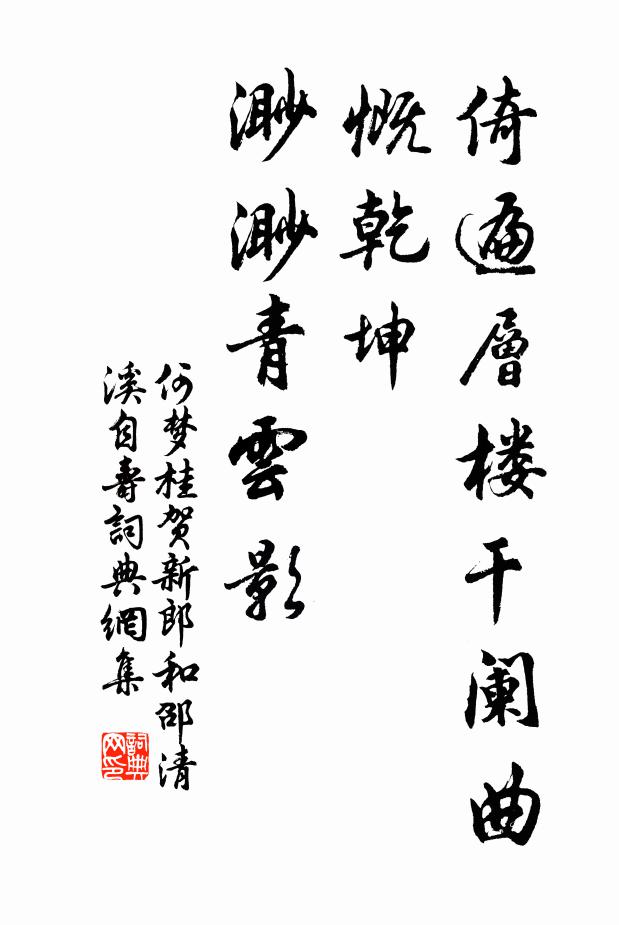 倚遍層楼干阑曲
慨乾坤
渺渺青雲影
何梦桂贺新郎和邵清
溪自壽詞典網集
詞典
网印